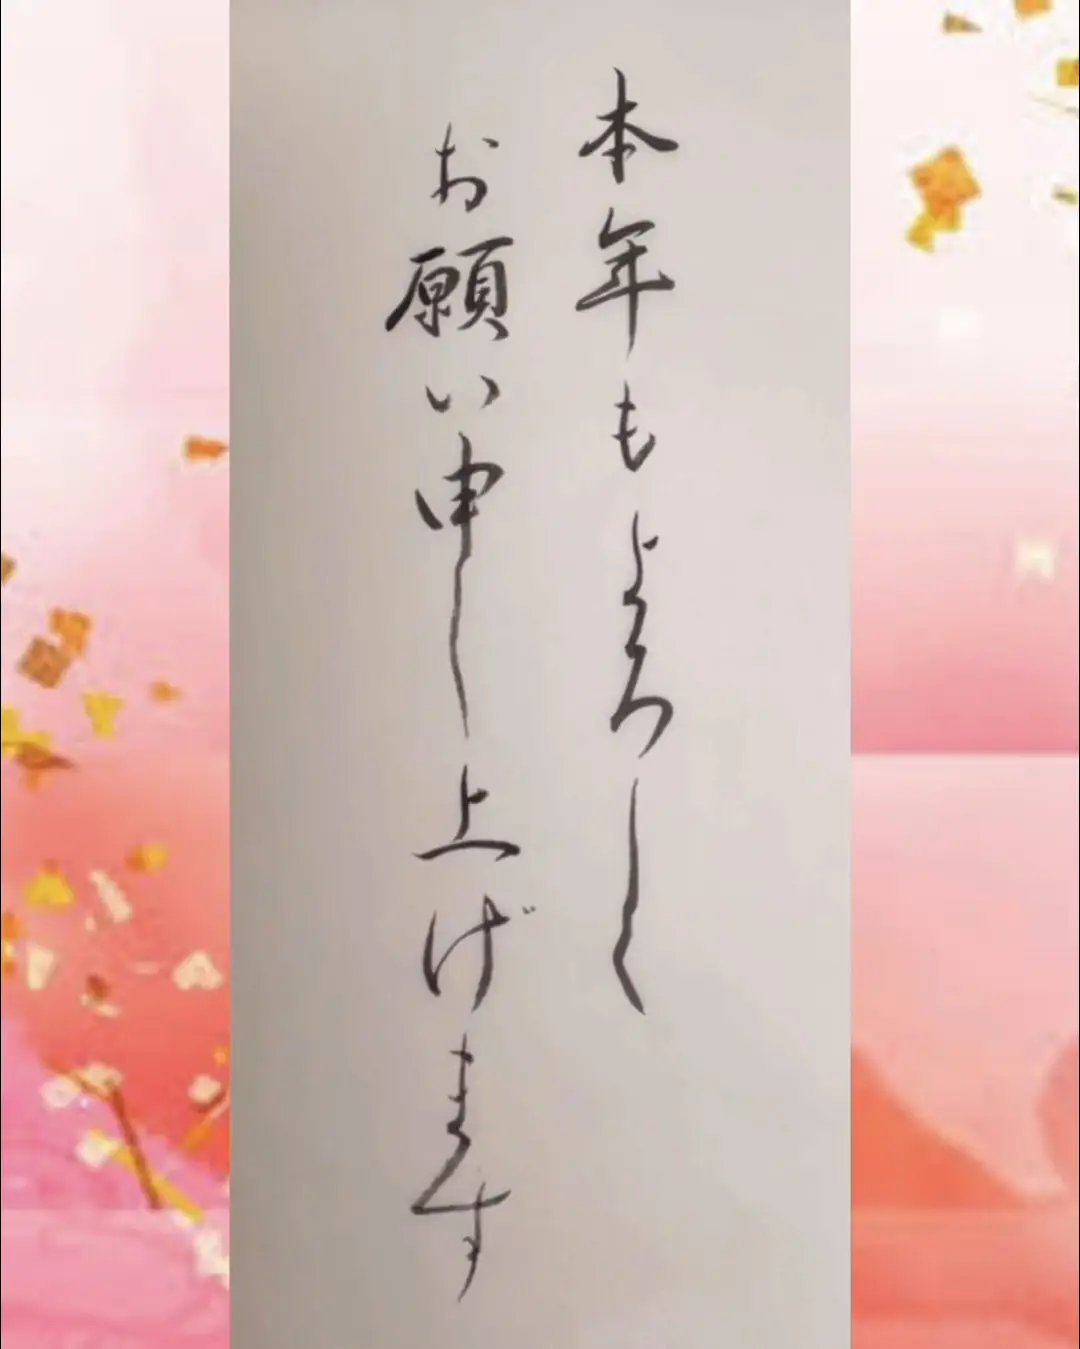 本年もよろしく
お願い申し上げます